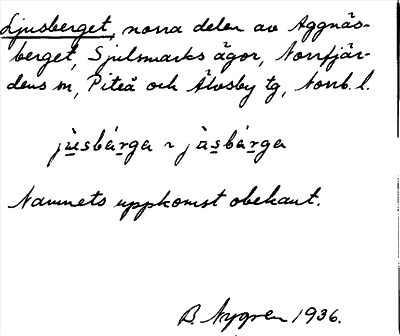 Ljusberget, norra delen av Aggnäs-
berget, Sjulsmarks ägor, Norrfjär-
dens sn, Piteå och Älvsby tg, Norrb. l.
jùsbárga ~ jùsbárga
Namnets uppkomst obekant.
B. Nygren 1936.